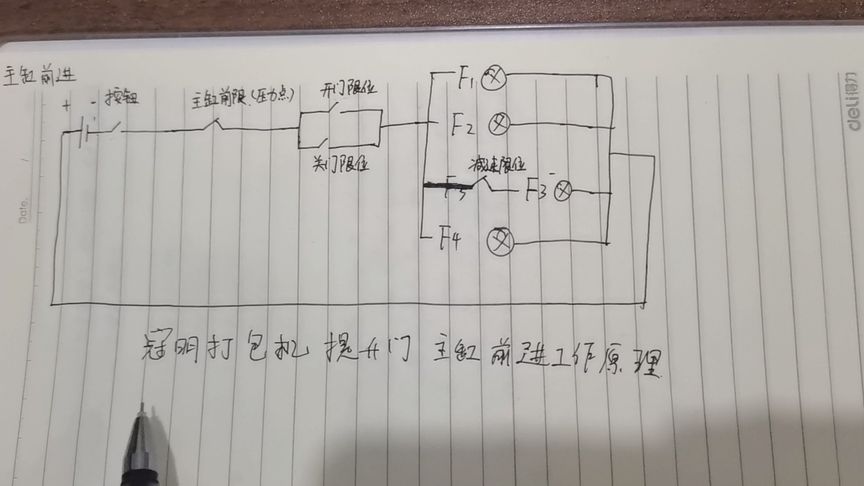 主缸前进
+ - 按钮
主缸前限(压力点)
开门限位
关门限位
F1
F2
减速限位
F3 F3
F4
冠明打包机 提升门 主缸前进工作原理
Date.
deli得力